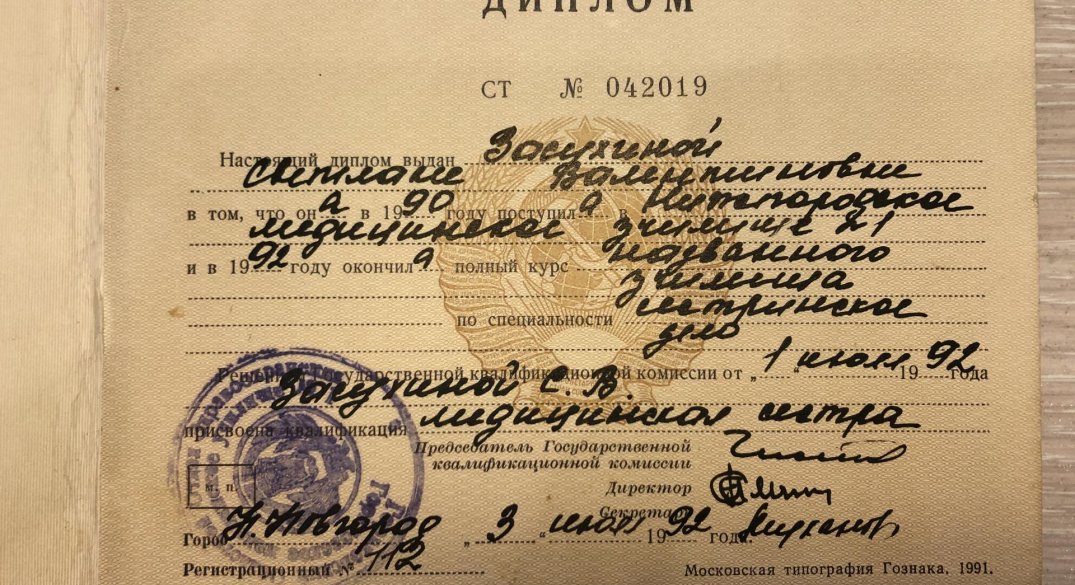 ДИПЛОМ
СТ № 042019
Настоящий диплом выдан Засухиной
Светлане Валентиновне
в том, что он а в 19 90 году поступил а в Нижегородское
медицинское училище №1
и в 19 92 году окончил а полный курс названного
училища
по специальности сестринское
дело
Решением Государственной квалификационной комиссии от „ 1 “ июля 19 92 года
Засухиной С. В.
присвоена квалификация медицинская сестра
Председатель Государственной
квалификационной комиссии
Директор
Секретарь
М. П.
Город Н. Новгород „ 3 “ июля 19 92 года.
Регистрационный № 112
Московская типография Гознака. 1991.